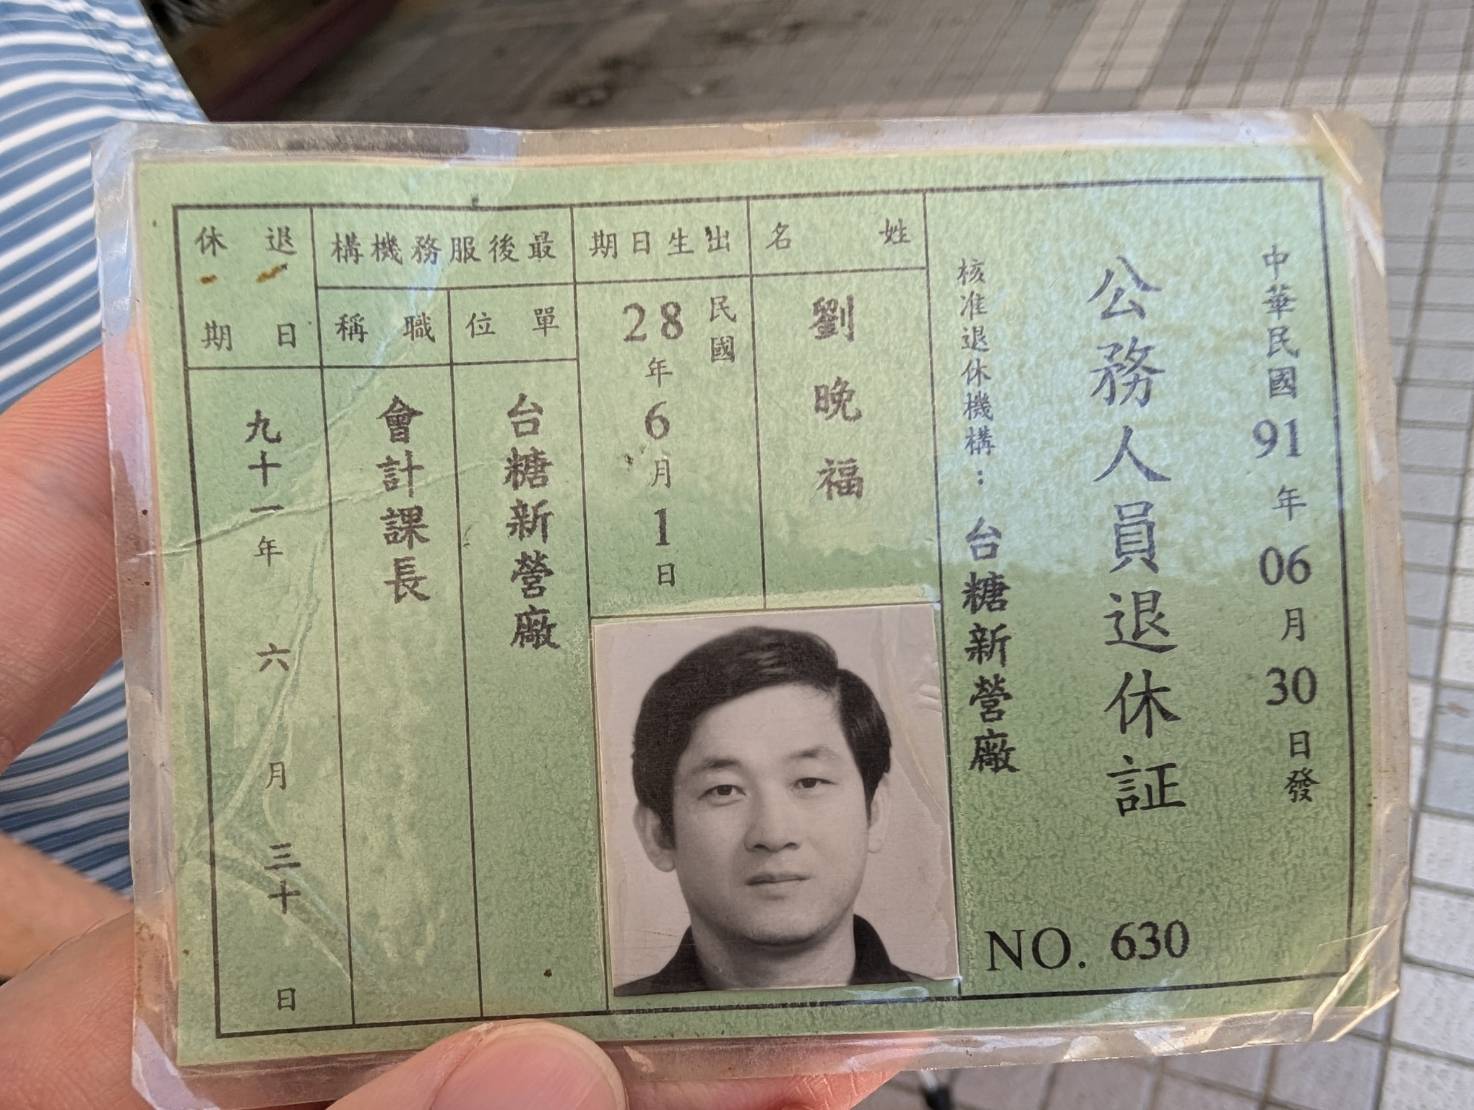 中華民國91年06月30日發
公務人員退休証
NO. 630
核准退休機構：台糖新營廠
姓名
劉晚福
出生日期
民國28年6月1日
最後服務機構
單位
台糖新營廠
職稱
會計課長
退休日期
九十一年六月三十日